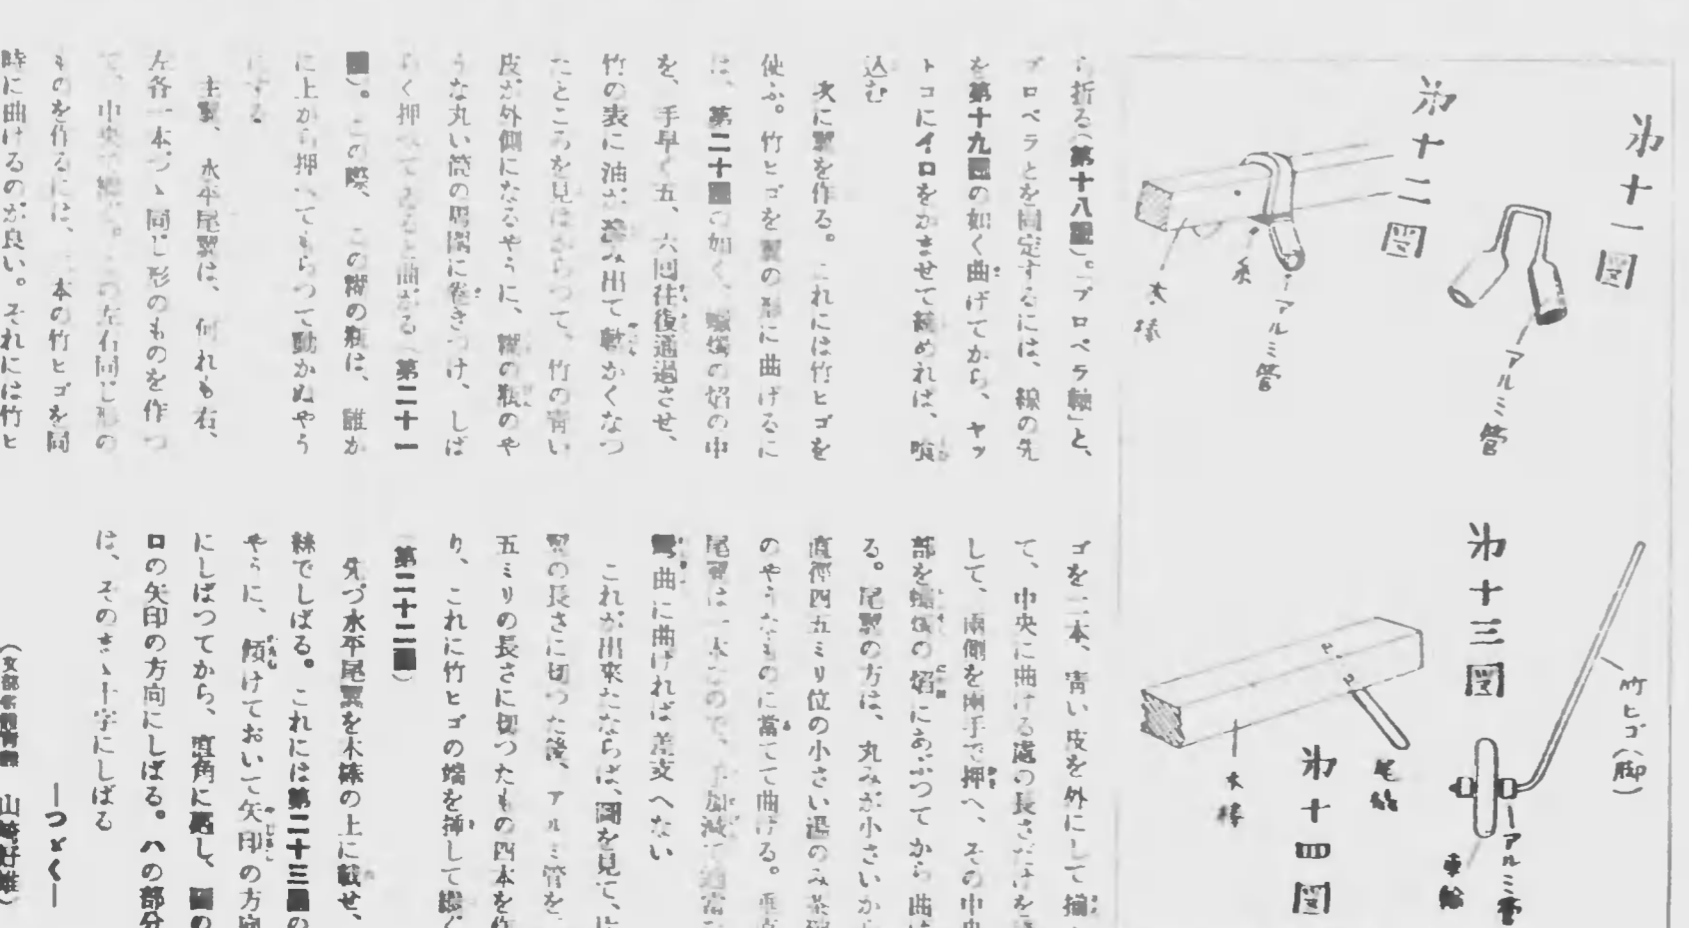 第十一図
アルミ管
第十二図
アルミ管
糸
木棒
第十三図
竹ヒゴ(脚)
アルミ管
車輪
第十四図
尾輪
木棒
折る(第十八圖)。「プロペラ軸」と、
プロペラとを固定するには、線の先
を第十九圖の如く曲げてから、ヤッ
トコにイロをかませて締めれば、喰
込む
次に翼を作る。これには竹ヒゴを
使ふ。竹ヒゴを翼の形に曲げるに
は、第二十圖の如く、蝋燭の焰の中
を、手早く五、六回往復通過させ、
竹の表に油が滲み出て軟かくなつ
たところを見はからつて、竹の靑い
皮が外側になるやうに、糊の瓶のや
うな丸い筒の周圍に巻きつけ、しば
らく押へてゐると曲がる(第二十一
圖)。この際、この糊の瓶は、誰か
に上から押へてもらつて動かぬやう
にする
主翼、水平尾翼は、何れも右、
左各一本づゝ同じ形のものを作つ
て、中央で繼ぐ。この左右同じ形の
ものを作るには、二本の竹ヒゴを同
時に曲げるのが良い。それには竹ヒ
ゴを二本、靑い皮を外にして揃へ
て、中央に曲げる處の長さだけを
して、兩側を兩手で押へ、その中央
部を蝋燭の焰にあぶつてから曲げ
る。尾翼の方は、丸みが小さいから
直徑四五ミリ位の小さい湯のみ茶碗
のやうなものに當てて曲げる。垂直
尾翼は一本なので、手加減で適當に
彎曲に曲げれば差支へない
これが出來たならば、圖を見て、片
翼の長さに切つた後、アルミ管を、
五ミリの長さに切つたもの四本を作
り、これに竹ヒゴの端を挿して繼ぐ
(第二十二圖)
先づ水平尾翼を木棒の上に載せ、
絲でしばる。これには第二十三圖の
やうに、傾けておいて矢印の方向
にしばつてから、直角に戻し、圖の
ロの矢印の方向にしばる。ハの部分
は、そのまゝ十字にしばる
—つゞく—
山崎好雄)